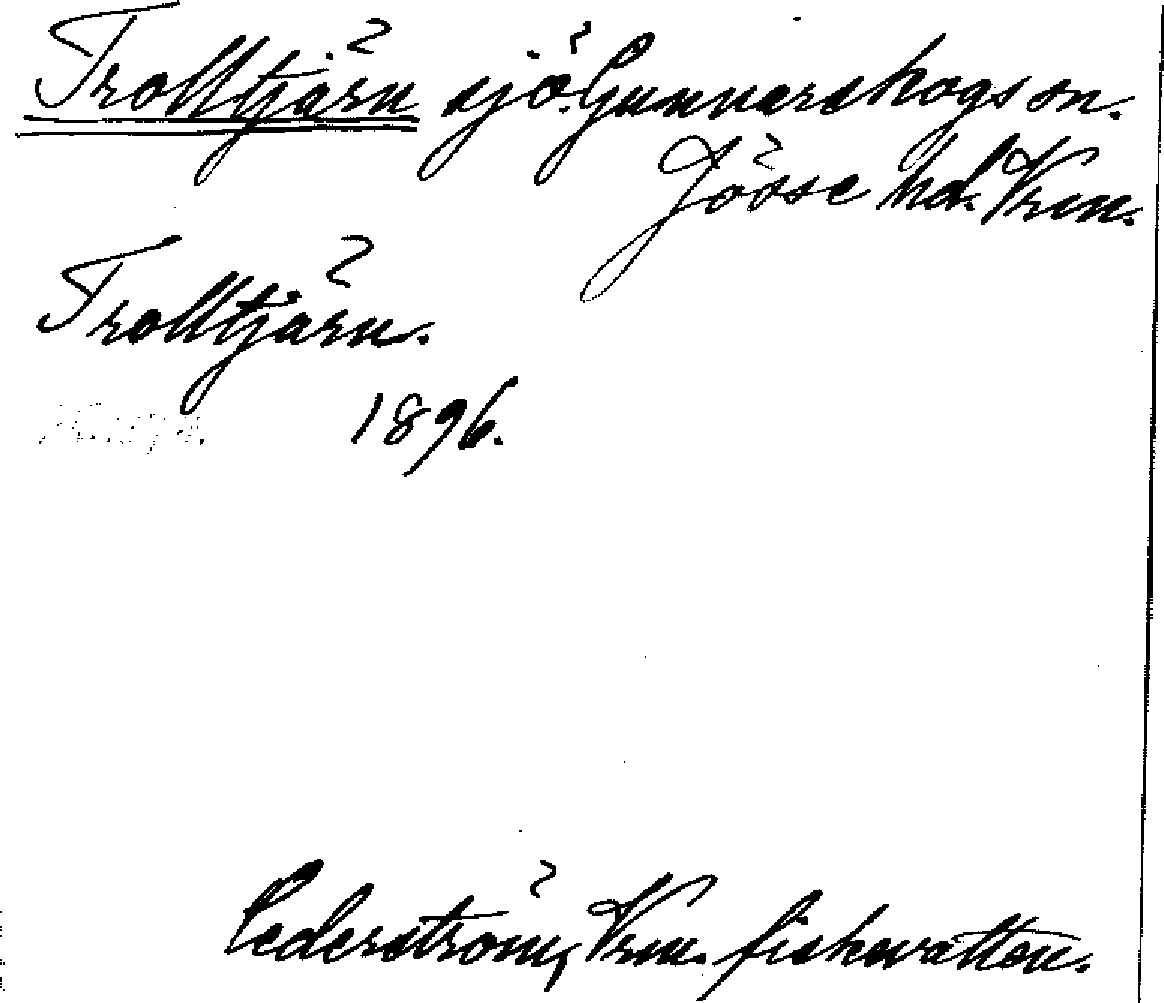 Trolltjärn sjö. Gunnarskogs sn.
Jösse hd. Vrm.
Trolltjärn.
1896.
Cederström, Vrm. fiskevatten.